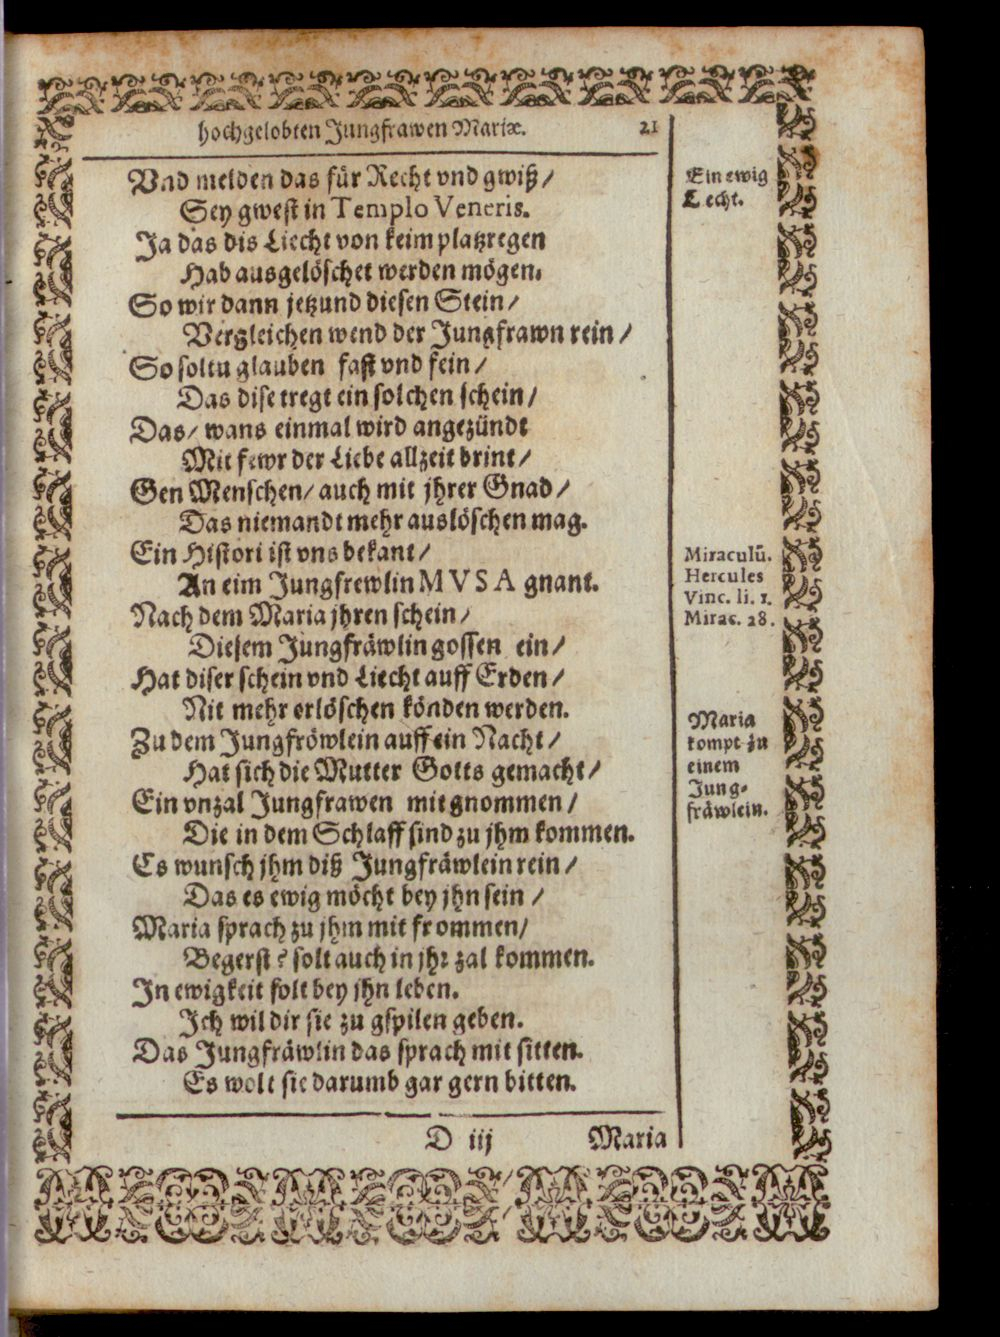 hochgelobten Jungfrawen Mariæ. 21
Vnd melden das für Recht vnd gwiß /
Sey gwest in Templo Veneris.
Ja das dis Liecht von keim platzregen
Hab ausgelöschet werden mögen.
So wir dann jetzund diesen Stein /
Vergleichen wend der Jungfrawn rein /
So soltu glauben fast vnd fein /
Das dise tregt ein solchen schein /
Das / wans einmal wird angezündt
Mit fewr der Liebe allzeit brint /
Gen Menschen / auch mit jhrer Gnad /
Das niemandt mehr auslöschen mag.
Ein Histori ist vns bekant /
An eim Jungfrewlin MVSA gnant.
Nach dem Maria jhren schein /
Diesem Jungfräwlin gossen ein /
Hat diser schein vnd Liecht auff Erden /
Nit mehr erlöschen könden werden.
Zu dem Jungfröwlein auff ein Nacht /
Hat sich die Mutter Gotts gemacht /
Ein vnzal Jungfrawen mitgnommen /
Die in dem Schlaff sind zu jhm kommen.
Es wunsch jhm diß Jungfräwlein rein /
Das es ewig möcht bey jhn sein /
Maria sprach zu jhm mit frommen /
Begerst? solt auch in jhr zal kommen.
In ewigkeit solt bey jhn leben.
Ich wil dir sie zu gspilen geben.
Das Jungfräwlin das sprach mit sitten.
Es wolt sie darumb gar gern bitten.
D iij Maria
Ein ewig
Lecht.
Miraculū.
Hercules
Vinc. li. 1.
Mirac. 28.
Maria
kompt zu
einem
Jung-
fräwlein.